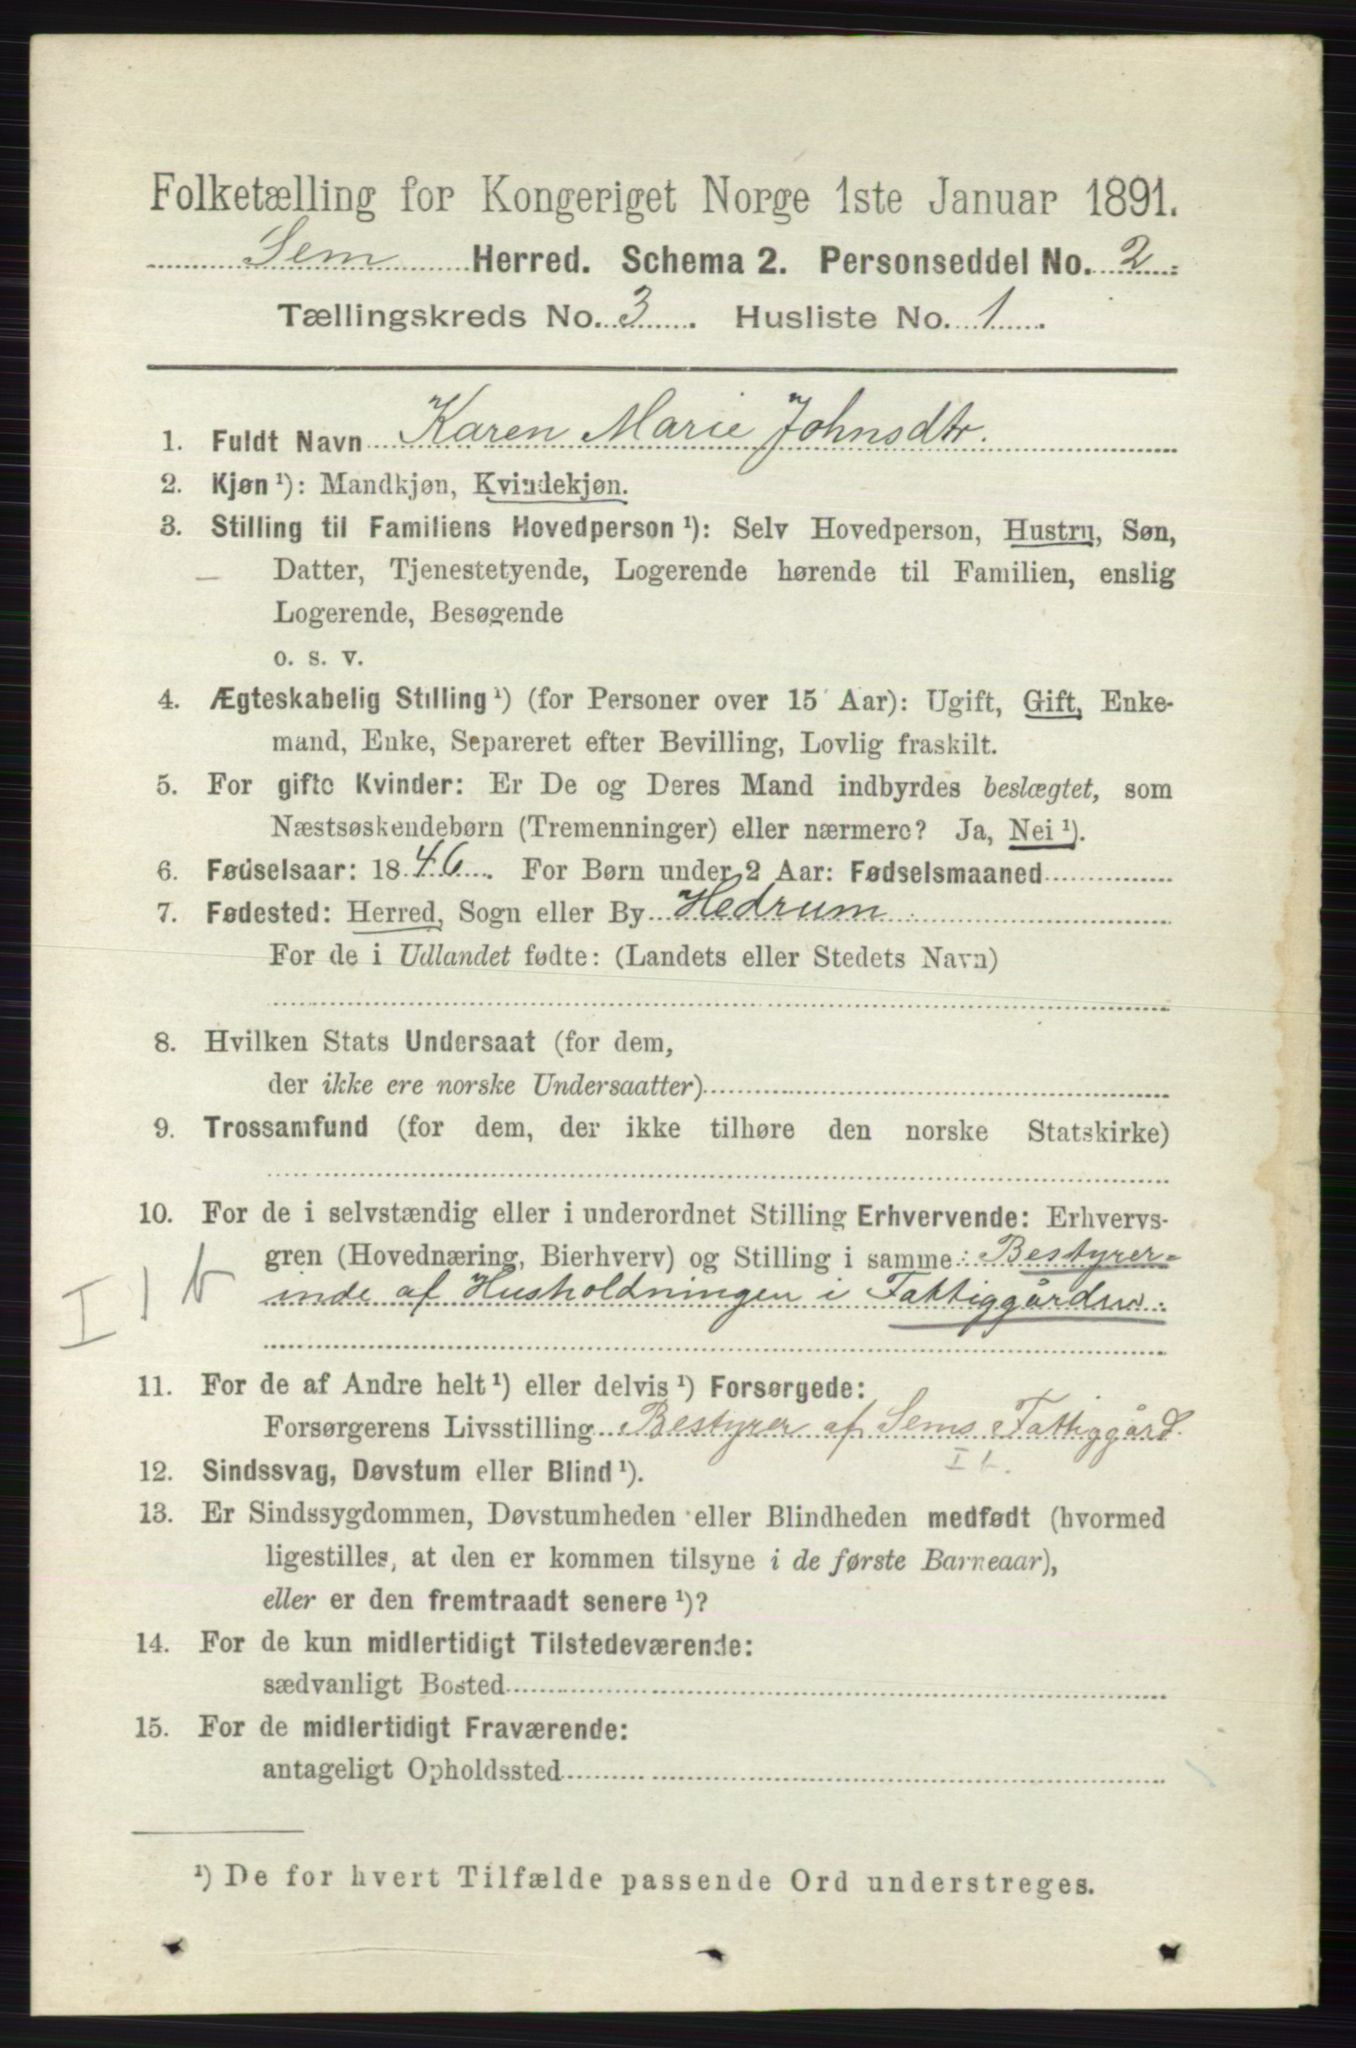 Folketælling for Kongeriget Norge 1ste Januar 1891.
Sem Herred. Schema 2. Personseddel No. 2
Tællingskreds No. 3. Husliste No. 1.
1. Fuldt Navn Karen Marie Johnsdtr.
2. Kjøn ¹): Mandkjøn, Kvindekjøn.
3. Stilling til Familiens Hovedperson ¹): Selv Hovedperson, Hustru, Søn,
Datter, Tjenestetyende, Logerende hørende til Familien, enslig
Logerende, Besøgende
o. s. v.
4. Ægteskabelig Stilling ¹) (for Personer over 15 Aar): Ugift, Gift, Enke-
mand, Enke, Separeret efter Bevilling, Lovlig fraskilt.
5. For gifte Kvinder: Er De og Deres Mand indbyrdes beslægtet, som
Næstsøskendebørn (Tremenninger) eller nærmere? Ja, Nei ¹).
6. Fødselsaar: 1846. For Børn under 2 Aar: Fødselsmaaned
7. Fødested: Herred, Sogn eller By Hedrum
For de i Udlandet fødte: (Landets eller Stedets Navn)
8. Hvilken Stats Undersaat (for dem,
der ikke ere norske Undersaatter)
9. Trossamfund (for dem, der ikke tilhøre den norske Statskirke)
10. For de i selvstændig eller i underordnet Stilling Erhvervende: Erhvervs-
gren (Hovednæring, Bierhverv) og Stilling i samme: Bestyrer-
inde af Husholdningen i Fattiggården.
I 1 b
11. For de af Andre helt ¹) eller delvis ¹) Forsørgede:
Forsørgerens Livsstilling Bestyrer af Sems Fattiggård.
I b.
12. Sindssvag, Døvstum eller Blind ¹).
13. Er Sindssygdommen, Døvstumheden eller Blindheden medfødt (hvormed
ligestilles, at den er kommen tilsyne i de første Barneaar),
eller er den fremtraadt senere ¹)?
14. For de kun midlertidigt Tilstedeværende:
sædvanligt Bosted
15. For de midlertidigt Fraværende:
antageligt Opholdssted
¹) De for hvert Tilfælde passende Ord understreges.